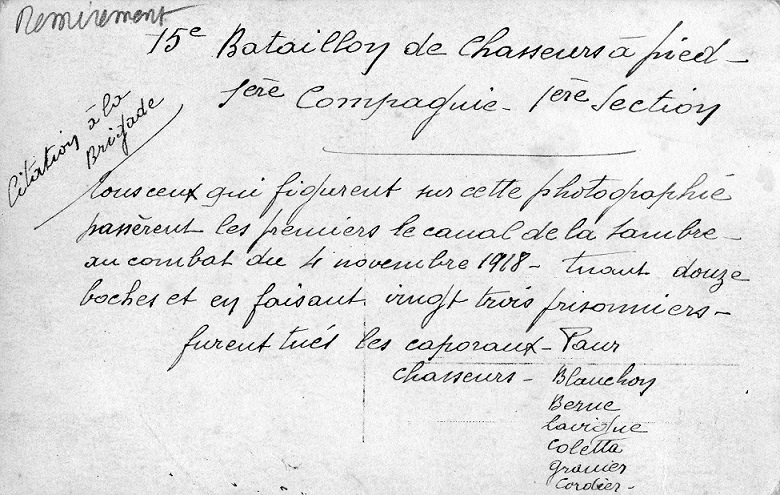 Remirement
15e Bataillon de Chasseurs à pied -
1ère Compagnie - 1ère Section
Citation à la
Brigade
Tous ceux qui figurent sur cette photographie
passèrent les premiers le canal de la Sambre -
au combat du 4 novembre 1918 - tuant douze
boches et en faisant vingt trois prisonniers -
furent tués les caporaux - Paur
chasseurs - Blanchon
Berne
Lavigne
Coletta
Granier
Cordier -